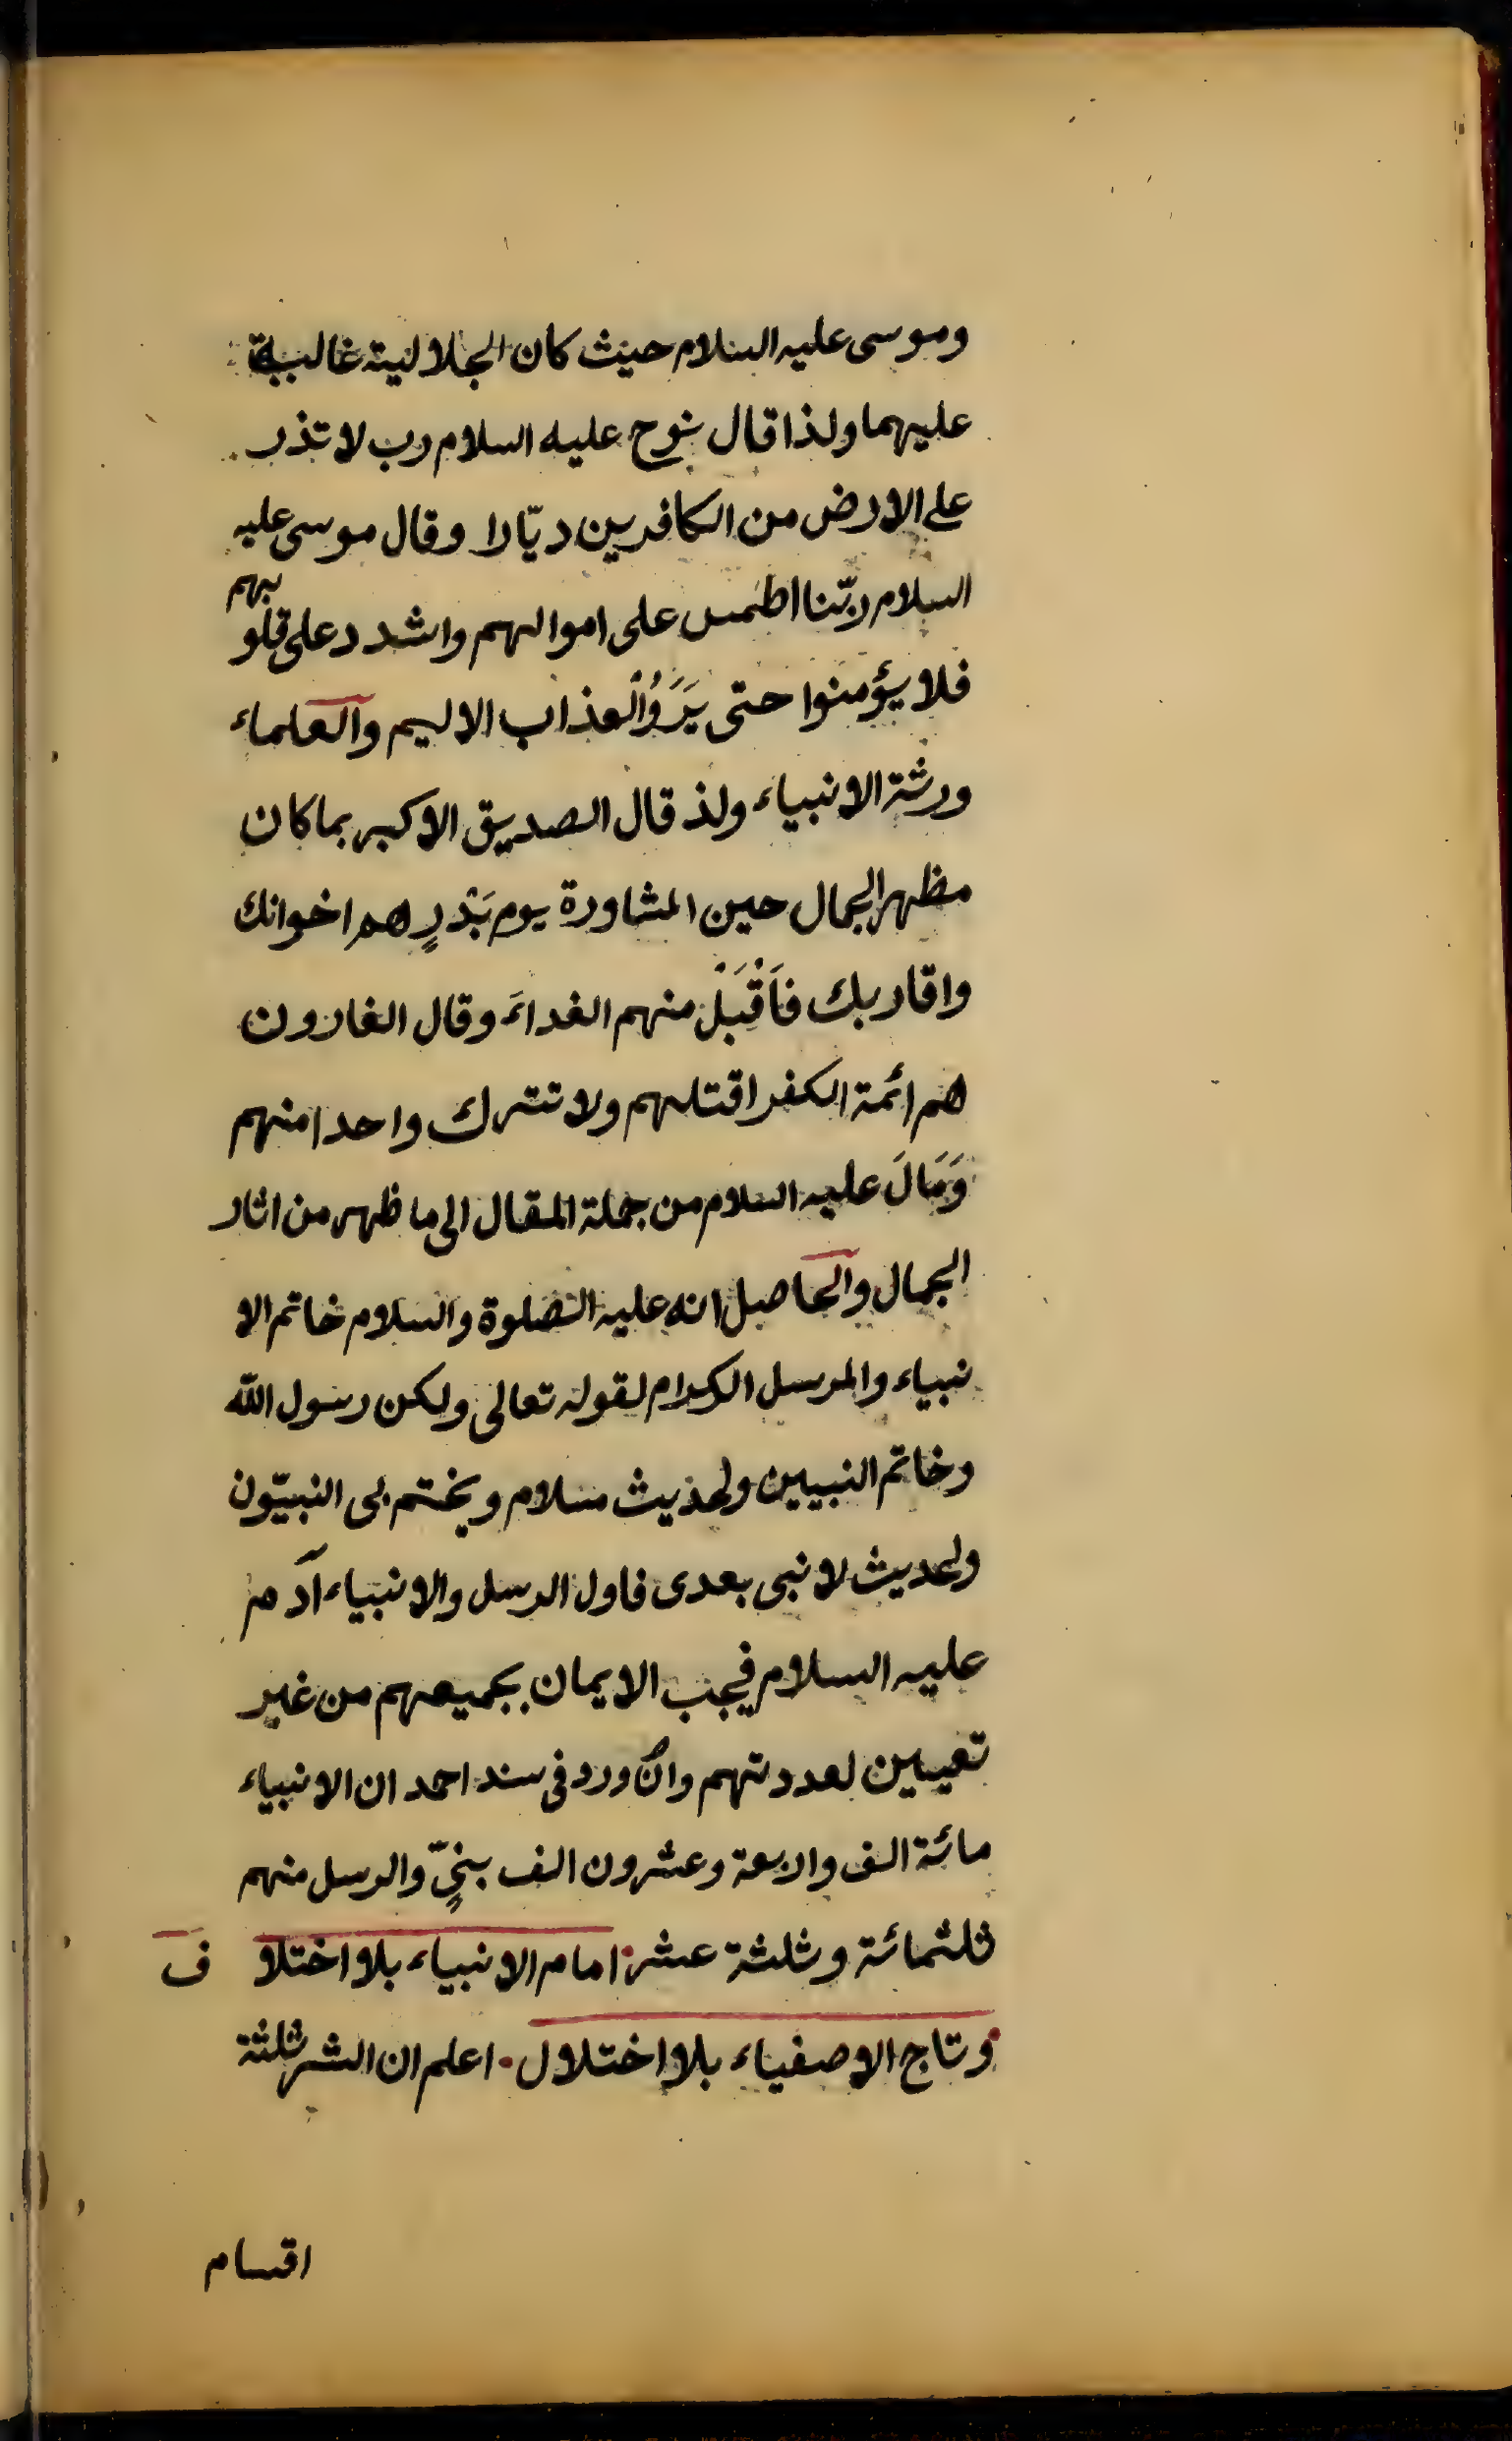 وموسى عليه السلام حيث كان الجلالية غالبة
عليهما ولذا قال نوح عليه السلام رب لا تذر
على الارض من الكافرين ديّارا وقال موسى عليه
السلام ربّنا اطمس على اموالهم واشدد على قلوبهم
فلا يؤمنوا حتى يَرَوُالعذاب الاليم والعلماء
ورثة الانبياء ولذ قال الصديق الاكبر بما كان
مظهر الجمال حين المشاورة يوم بَدْرٍ هم اخوانك
واقاربك فَاَقْبَلْ منهم الفداءَ وقال الفارون
هم ائمة الكفر اقتلهم ولا تترك واحدا منهم
وَمَالَ عليه السلام من جملة المقال الى ما ظهر من اثار
الجمال والحاصل انه عليه الصلوة والسلام خاتم الا
نبياء والمرسل الكرام لقوله تعالى ولكن رسول الله
وخاتم النبيين ولحديث مسلام ويختم بى النبيّون
ولحديث لا نبى بعدى فاول الرسل والانبياء آدم
عليه السلام فيجب الايمان بجميعهم من غير
تعيين لعددتهم وان ورد فى سند احمد ان الانبياء
مائة الف واربعة وعشرون الف نبيٍّ والرسل منهم
ثلثمائة وثلثة عشر امام الانبياء بلا اختلا ف
وتاج الاصفياء بلا اختلال . اعلم ان الشر ثلثة
اقسام